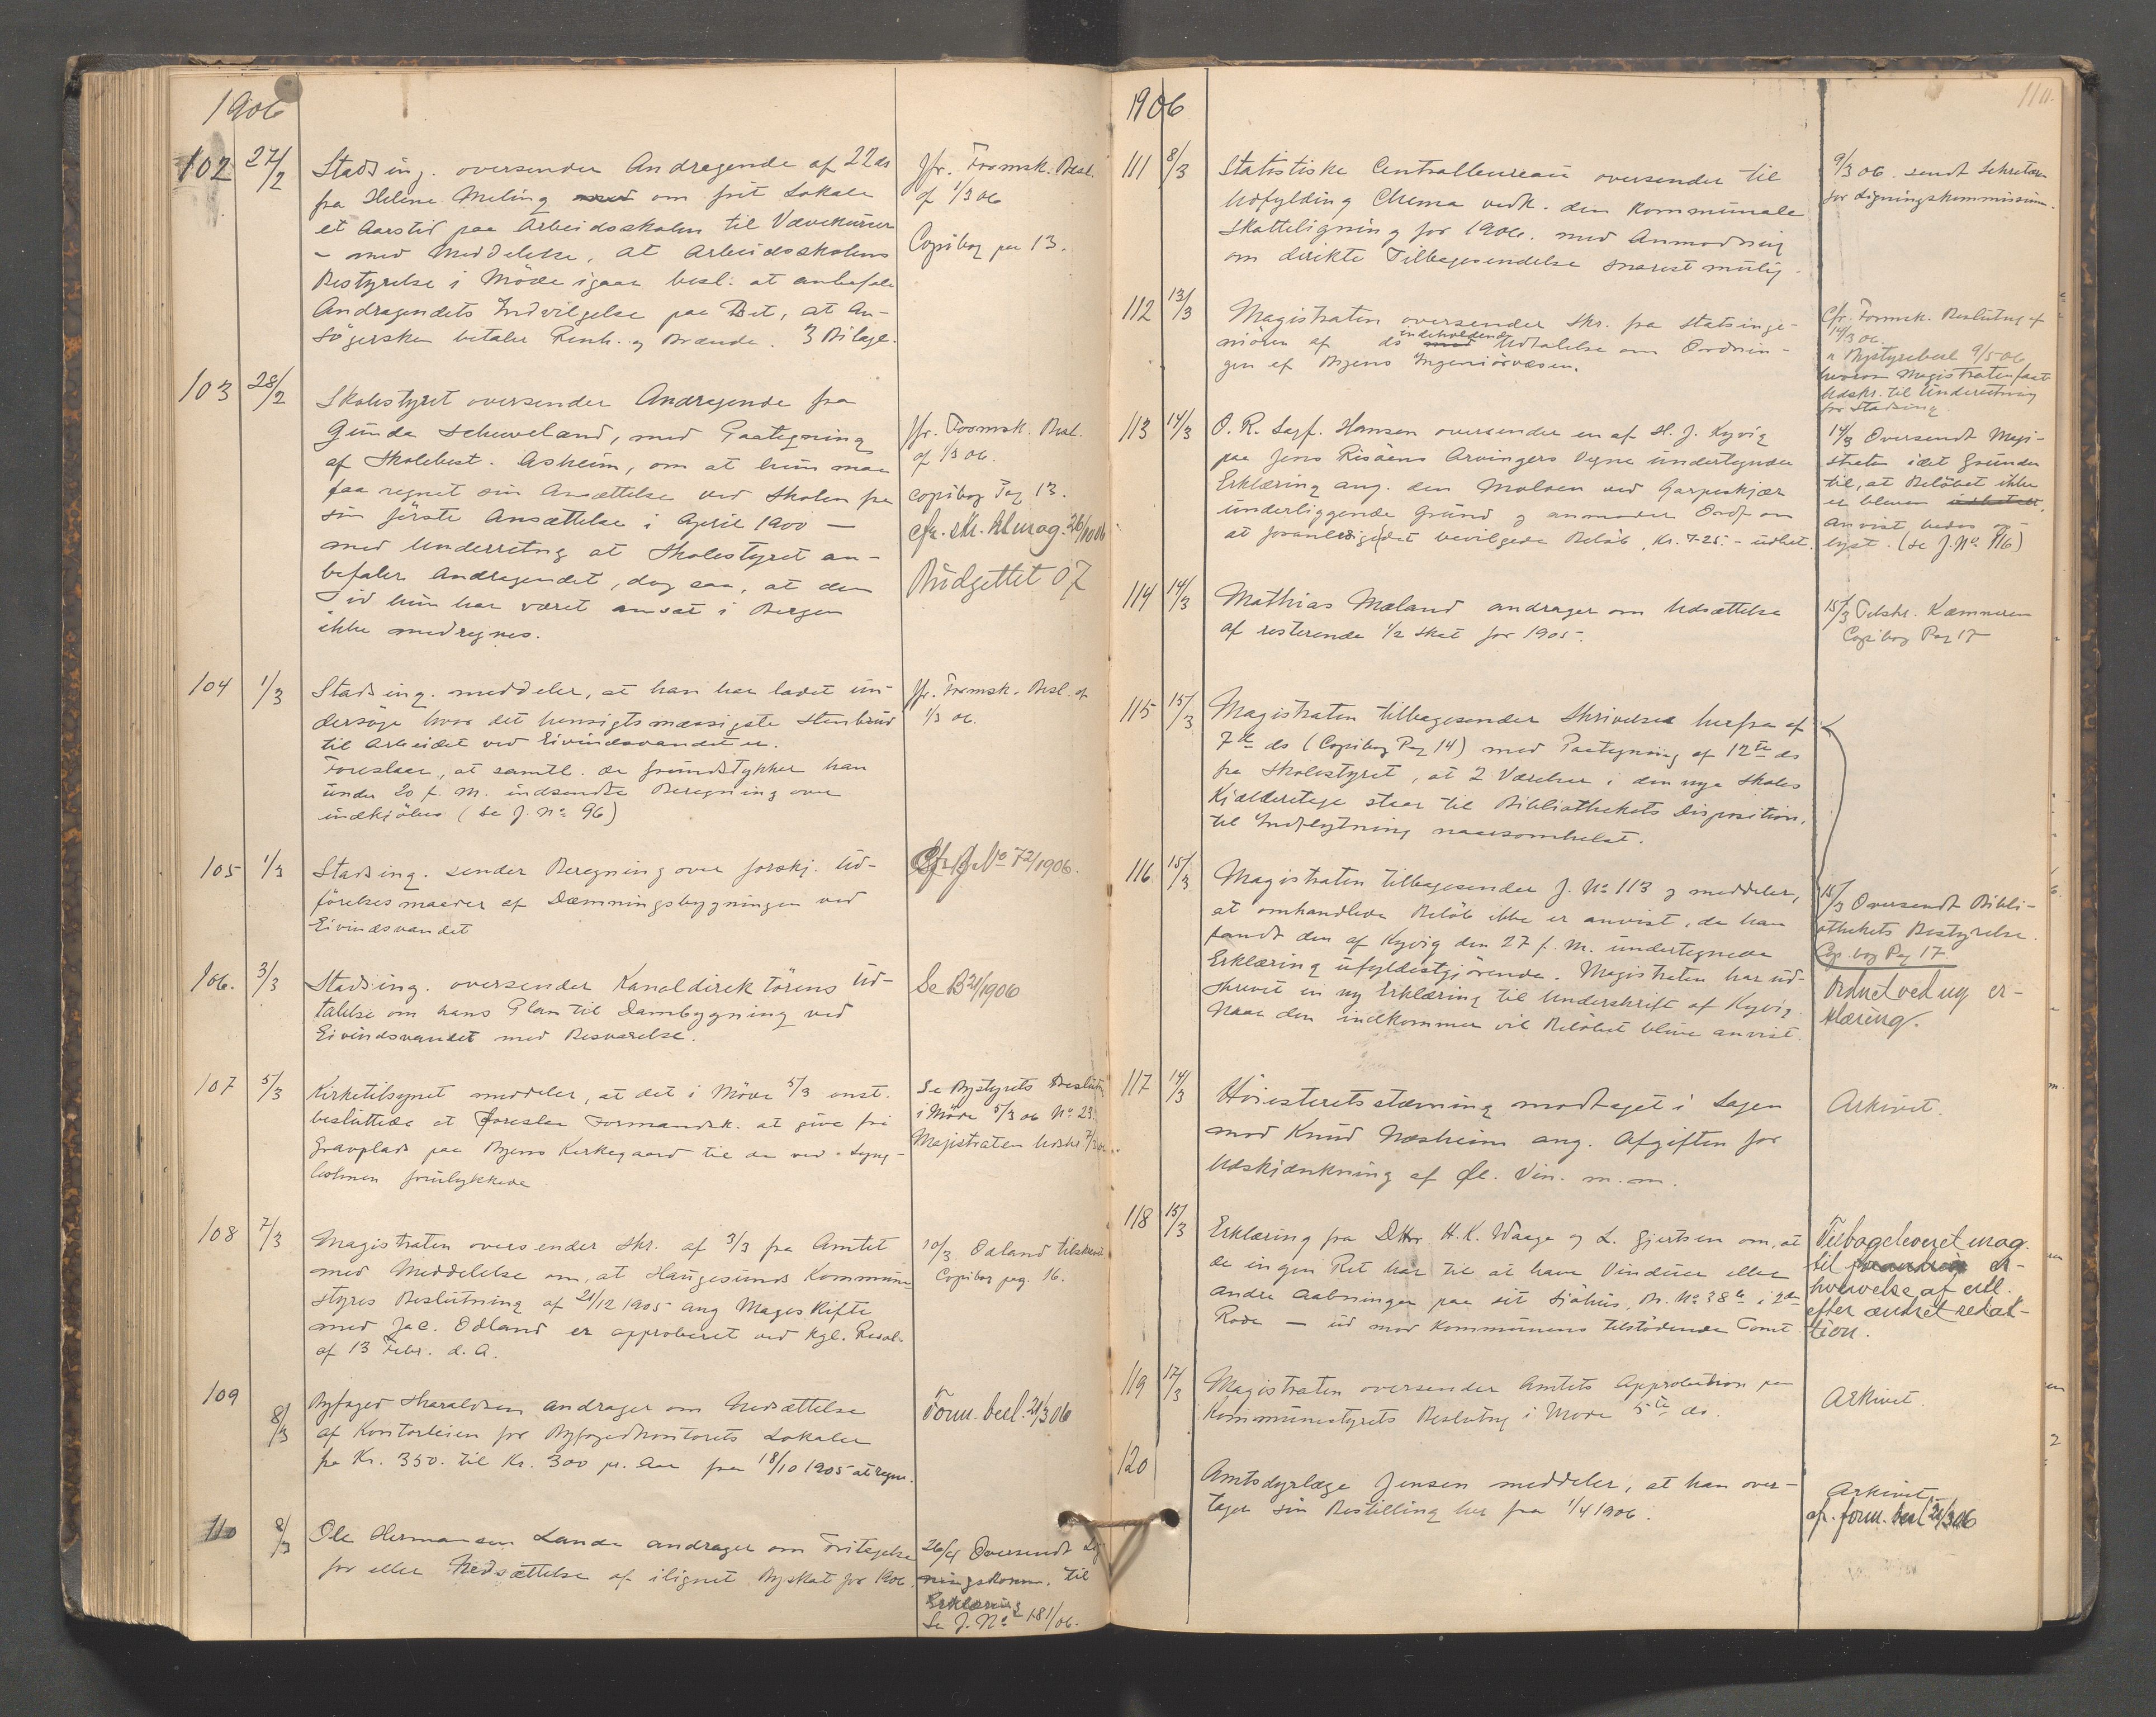 1906
102 27/2 Stadsing. oversender Andragende af 22 ds
fra Helene Meling om frit Lokale
et Aarstid paa Arbeidsskolen til Vævekurser
- med Meddelelse, at Arbeidsskolens
Bestyrelse i Möde igaar besl. at anbefale
Andragendets Indvilgelse paa Bet, at An-
sögersken betaler Renh. og Brænde. 3 Bilage.
Jfr. Formsk. Besl.
af 1/3 06
Copibog pa 13.
103 28/2 Skolestyret oversender Andragende fra
Gunda , med Paategning
af Skolebest. Asheim, om at hun maa
faa regnet sin Ansættelse ved Skolen fra
sin förste Ansættelse i April 1900 —
med Underretng at Skolestyret an-
befaler Andragendet, dog saa, at den
Tid hun har været ansat i Bergen
ikke medregnes.
Jfr. Formsk. Besl.
af 1/3 06.
Copibog Pag 13.
cfr. skr. til mag. 26/10 06
Budgettet 07
104 1/3 Stadsing. meddeler, at han har ladet un-
dersöge hvor det hensigtsmæssigste Stenbrud
til Arbeidet ved Eivindsvandet er.
Foreslaar, at samtl. de Grundstykker han
under 20 f. M. indsendte Beregning over
indkjöbes (se J. No 96)
Jfr. Formsk. Besl. af
1/3 06.
105 1/3 Stadsing. sender Beregning over forskj. Ud-
förelsesmaader af Dæmningsbygningen ved
Eivindsvandet
Cfr. J. No 72/1906.
106. 3/3 Stadsing. oversender Kanaldirektörens Ud-
talelse om hans Plan til Dambygning ved
Eivindsvandet med Besvarelse.
Se B 21/1906
107 5/3 Kirketilsynet meddeler, at det i Möde 5/3 enst.
besluttede at foreslaa Formandsk. at give fri
Gravplads paa Byens Kirkegaard til de ved
holmen forulykkede
Se Bystyrets Beslutn
i Möde 5/3 06 No 23.
Magistraten Udskr 7/3 06
108 7/3 Magistraten oversender Skr. af 3/3 fra Amtet
med Meddelelse om, at Haugesunds Kommune
styres Beslutning af 21/12 1905 ang Mageskifte
med Jac. Odland er approberet ved Kgl. Resol.
af 13 Febr. d. A.
10/3. Odland tilskrevet
Copibog pag. 16.
109 8/3 Byfoged Haraldsen andrager om Nedsættelse
af Kontorleien for Byfogedkontorets Lokaler
fra Kr. 350. til Kr. 300 pr. Aar fra 18/10 1905 at regne.
Form. besl. 21/3 06
110 8/3 Ole Hermansen Lande andrager om Fritagelse
for eller Nedsættelse af ilignet Byskat for 1906.
26/4 Oversendt Lig
ningskomm. til
Erklæring
Se J. No 181/06.
110.
1906
111 8/3 Statistiske Centralbureau oversender til
Udfylding Chema vedk. den kommunale
Skatteligning for 1906. med Anmodning
om direkte Tilbagesendelse snarest mulig.
9/3 06. sendt Sekretæren
for Ligningskommissionen.
112 13/3 Magistraten oversender Skr. fra Stadsinge-
niören af ds indeholdende Udtalelse om Ordnin-
gen af Byens Ingeniörvæsen.
Cfr. Formsk. Beslutng af
14/3 06.
" Bystyrebesl 9/5 06,
hvorom Magistraten faat
Udskr. til Underretning
for Stadsing.
113 14/3 O. R. Sagf. Hansen oversender en af H. J. Kyvig
paa Jens Risöens Arvingers Vegne undertegnede
Erklæring ang. den Moloen ved Garpeskjær
underliggende Grund og anmoder Ordf om
at foranledige det bevilgede Belöb, Kr. 725.- udbet.
14/3 Oversendt Magi-
straten idet Grunden
til, at Belöbet ikke
er bleven
anvist, bedes op-
lyst. (se J. No. 116)
114 14/3 Mathias Mæland andrager om Udsættelse
af resterende 1/2 Skat for 1905.
15/3 Tilskr. Kæmneren
Copibog Pag 17
115 15/3 Magistraten tilbagesender Skrivelse herfra af
7de ds (Copibog Pag 14) med Paategning af 12te ds
fra Skolestyret, at 2 Værelser i den nye Skoles
Kjælderetage staar til Bibliothekets Disposition,
til Indflytning naarsomhelst.
116 15/3 Magistraten tilbagesender J. No 113 og meddeler,
at omhandlede Belöb ikke er anvist, da han
fandt den af Kyvig den 27 f. M. undertegnede
Erklæring ufyldestgjörende. Magistraten har ud-
skrevet en ny Erklæring til Underskrift af Kyvig.
Naar den indkommer vil Belöbet blive anvist.
15/3 Oversendt Bibli-
othekets Bestyrelse.
Cop. bog Pag 17.
Ordnet ved ny er-
klæring.
117 14/3 Höiesteretsstævning modtaget i Sagen
mod Knud Næsheim ang. Afgiften for
Udskjænkning af Øl. Vin. m.m.
Arkivet.
118 15/3 Erklæring fra DHrr H. K. Waage og L. Gjertsen om, at
de ingen Ret har til at have Vinduer eller
andre Aabninger paa sit Sjöhus, Br. No 38 b i 2den
Rode — ud mod Kommunens tilstödende Tomt
Tilbageleveret mag.
til er-
hvervelse af erkl.
efter ændret redak-
tion.
119 17/3 Magistraten oversender Amtets Approbation paa
Kommunestyrets Beslutng i Möde 5te ds.
Arkivet.
120 Amtsdyrlæge Jensen meddeler, at han over-
tager sin Bestilling her fra 1/4 1906.
Arkivet
cfr. form. besl 21/3 06